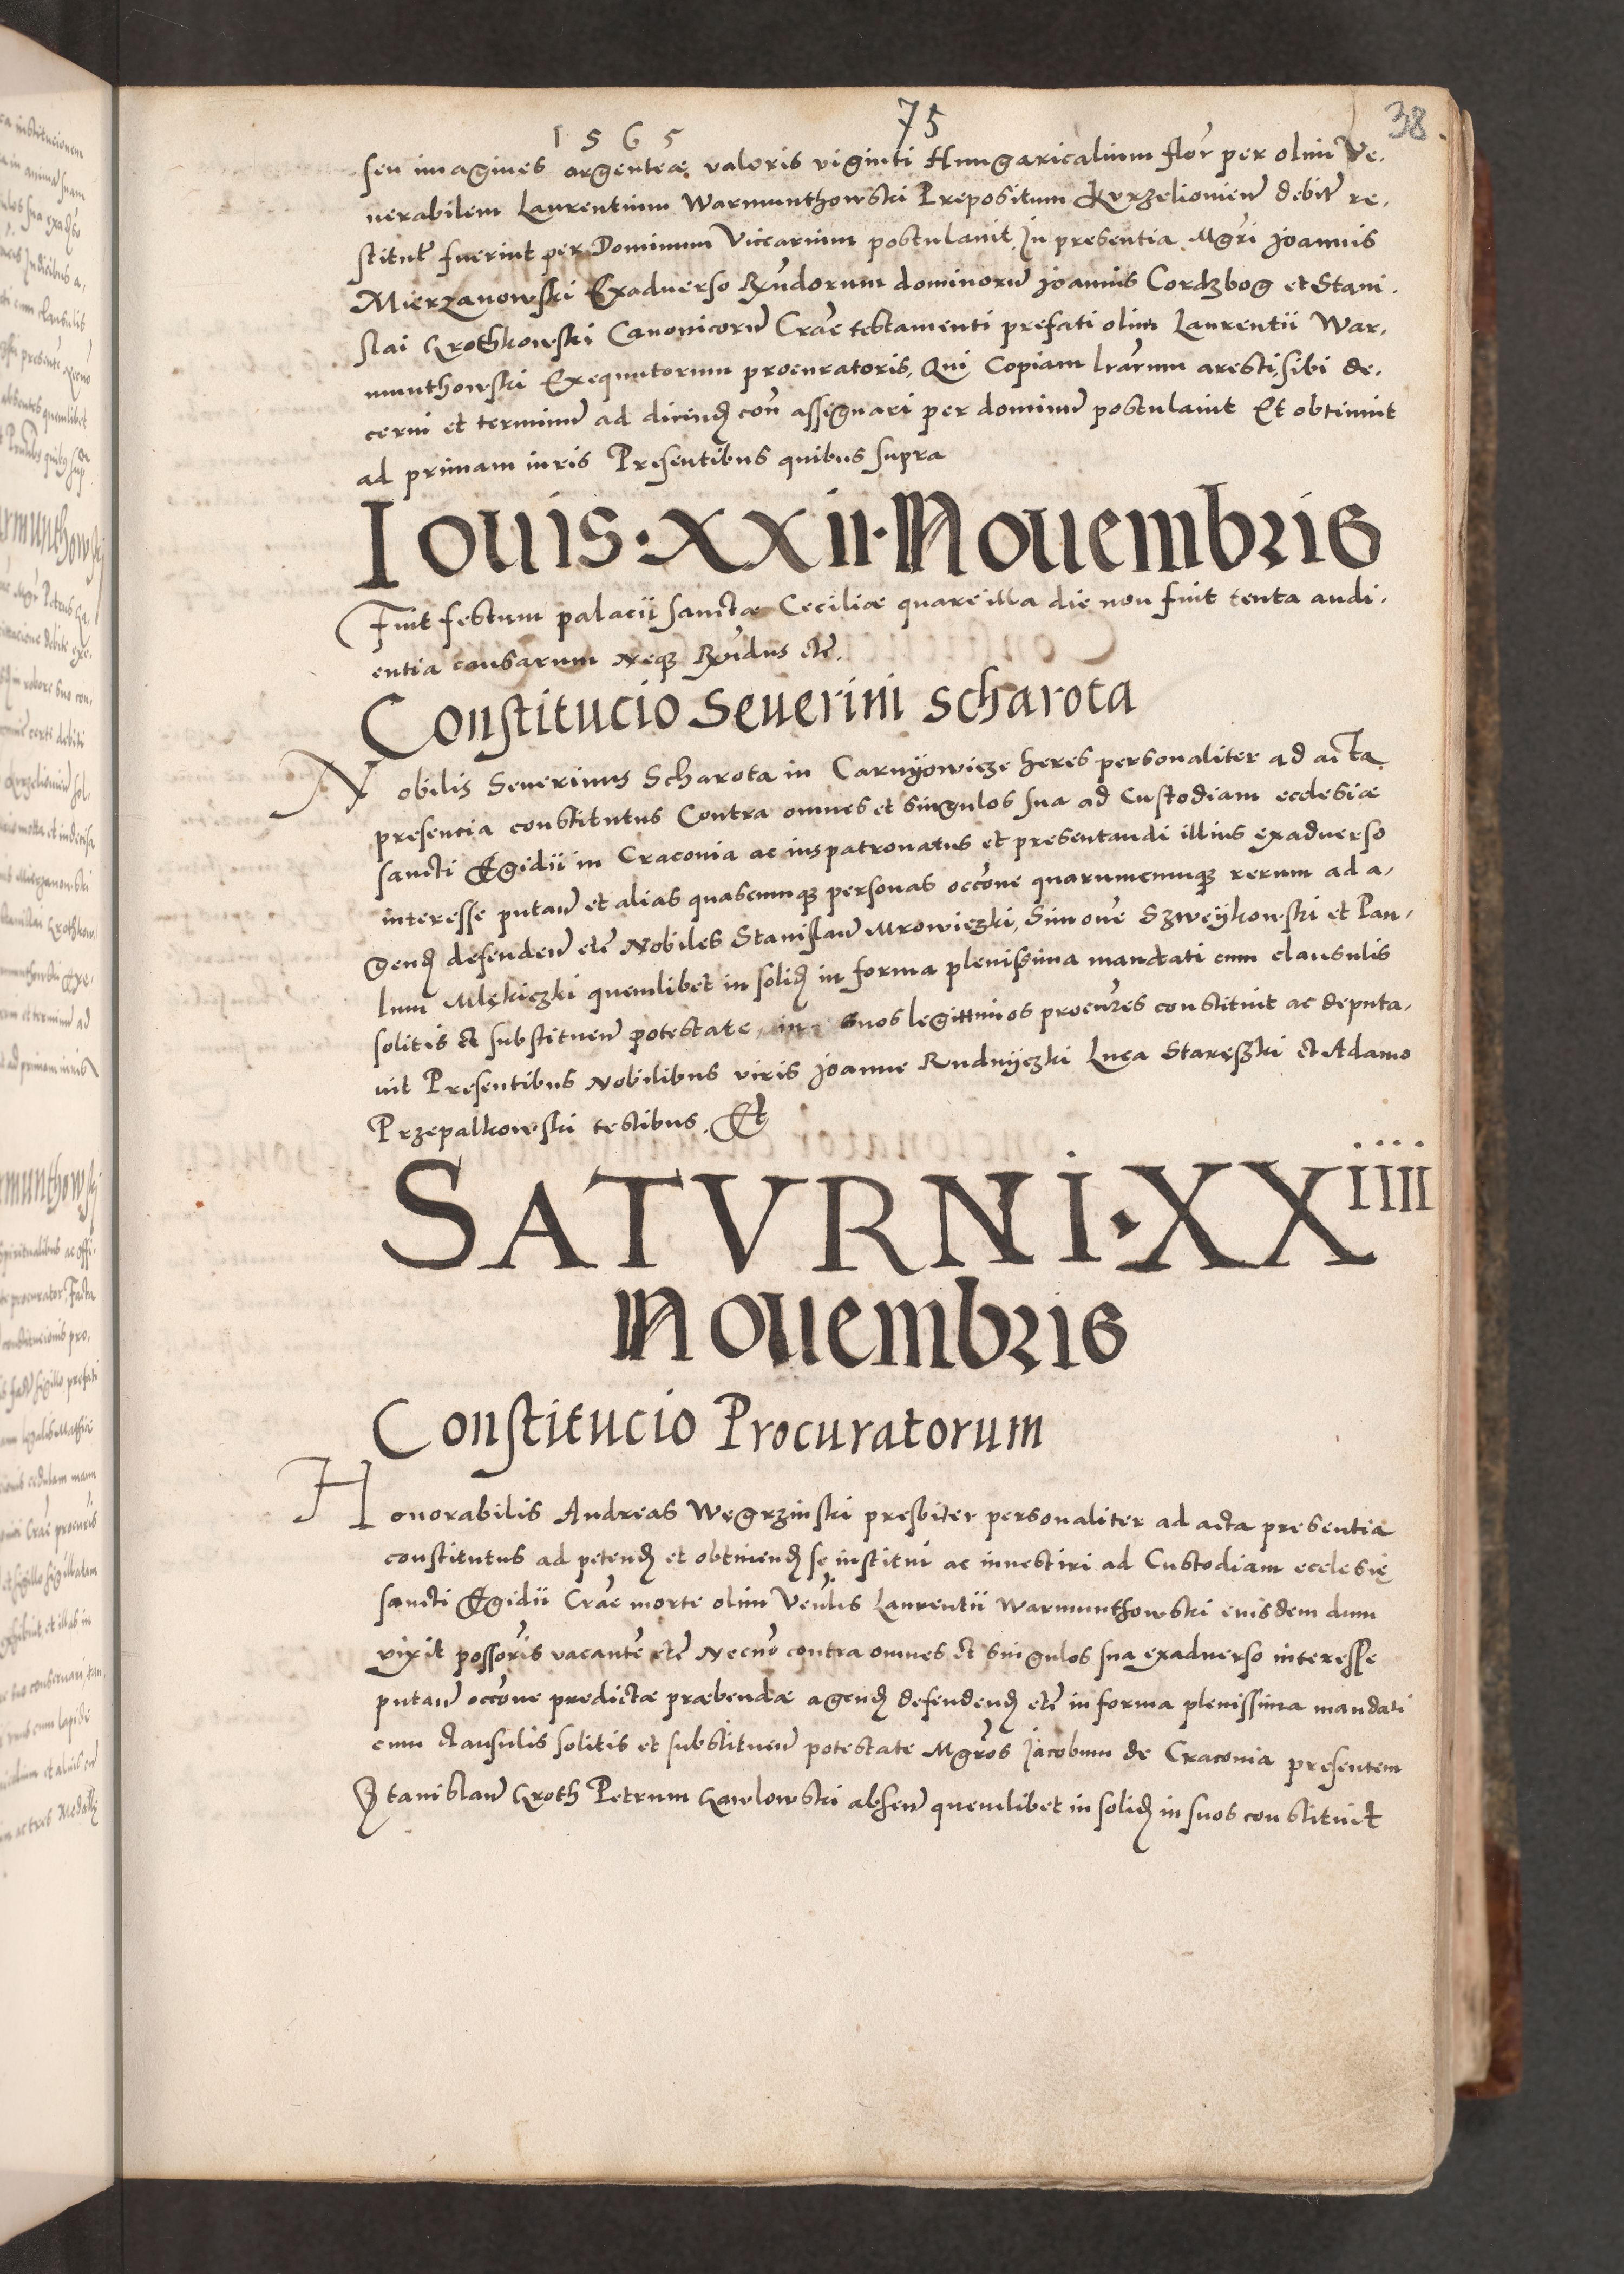 1565
75
38
seu imagines argenteæ valoris viginti Hungaricalium flor̃ per olim Ve,
nerabilem Laurentium Warmunthowski Prepositum Kvrzelionien̄ debit̃ re,
stitut̃ fuerint per Dominum Viccarium postulavit. In presentia Mgr̃i Joannis
Mierzanowski Exadverso Rñdorum dominorũ Joannis Cordzbog et Stani,
slai Grothkowski Canonicorũ Crac̃ testamenti prefati olim Laurentii War,
munthowski Exequutorum procuratoris, Qui Copiam lrãrum aresti, sibi de,
cerni et terminũ ad dicend̨ con̄ assignari per dominũ postulavit Et obtinuit
ad primam iuris Presentibus quibus supra
Iouis · XXII · Nouembris
Fuit festum palacii sanctæ Ceciliæ quare illa die non fuit tenta audi,
entia causarum neq̨ Rñdus etc̃.
Constitucio Seuerini Scharota
Nobilis Severinus Scharota in Carnyowicze heres personaliter ad acta
presencia constitutus Contra omnes et singulos sua ad Custodiam ecclesiæ
sancti Egidii in Cracovia ac iuspatronatus et presentandi illius exadverso
interesse putan̄ et alias quascunq̨ personas occõne quarumcumq̨ rerum ad a,
gend̨ defenden̄ etc̃ Nobiles Stanislaũ Mrowiczki, Simonẽ Szweykowski et Pau,
lum Mlękiczki quemlibet in solid̨ in forma plenissima mandati cum clausulis
solitis et substituen̄ potestate, in suos legittimos procur̃es constituit ac deputa,
vit Presentibus Nobilibus viris Joanne Rudnyczki Luca Staręszki et Adamo
Przepalkowski testibus. Et
SATVRNI · XXIIII
Nouembris
Constitucio Procuratorum
Honorabilis Andreas Węgrzinski presbiter personaliter ad acta presentia
constitutus ad petend̨ et obtinend̨ se institui ac investiri ad Custodiam ecclesię
sancti Egidii Crac̃ morte olim Ven̄lis Laurentii Warmunthowski eiusdem dum
vixit possor̃is vacantẽ etc̃ Necnõ contra omnes et singulos sua exadverso interesse
putan̄ occõne predictæ præbendæ agend̨ defendend̨ etc̃ in forma plenissima mandati
cum clausulis solitis et substituen̄ potestate Mgr̃os Jacobum de Cracovia presentem
Stanislaũ Groth Petrum Gawlowski absen̄ quemlibet in solid̨ in suos constituit